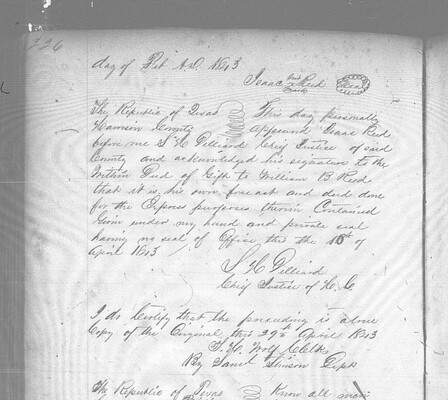 226
day of Feb A.D. 1843
Isaac his mark Reed
Seal
The Republic of Texas
Harrison County
This day personally
appeared Isaac Reed
before me S H Pelliard Chief Justice of said
County and acknowledged his signature to the
within Deed of Gift to William B Reed
that it is his own free act and deed done
for the Express purposes therein Contained
Given under my hand and private seal
having no seal of Office this the 18th of
April 1843
S H Pelliard
Chief Justice of H. C
I do Certify that the preceeding is a true
Copy of the Original this 29th April 1843
Clk
By Saml Stinson Dept
The Republic of Texas
Know all men